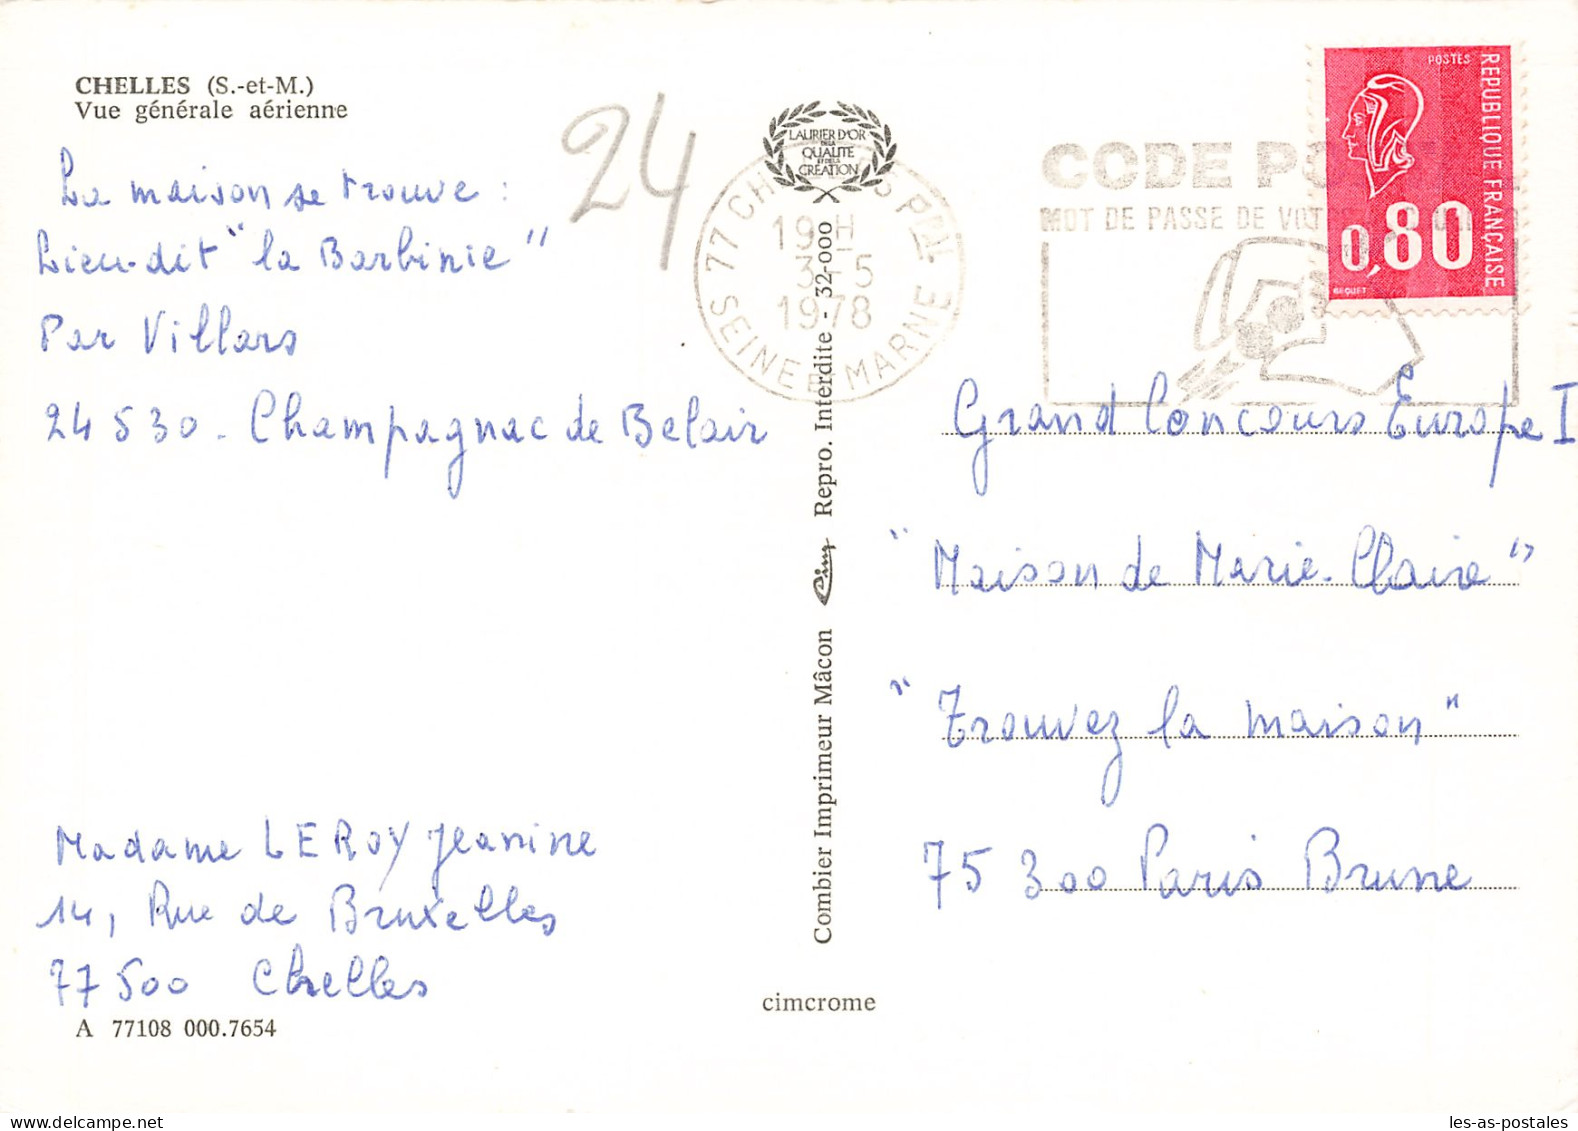 CHELLES (S.-et-M.)
Vue générale aérienne
24
La maison se trouve :
Lieu-dit "la Barbinie"
Par Villars
24 530 - Champagnac de Belair
Madame LEROY Jeanine
14, Rue de Bruxelles
77 500 Chelles
A 77108 000.7654
LAURIER D'OR
DE LA
QUALITE
ET DE LA
CRÉATION
77 CHELLES PPAL
19 H
3-5
1978
SEINE ET MARNE
Combier Imprimeur Mâcon Cim Repro. Interdite - 32-000
cimcrome
CODE
MOT DE PASSE DE
POSTES
REPUBLIQUE FRANÇAISE
0,80
BEQUET
Grand Concours Europe I
"Maison de Marie-Claire"
"Trouvez la maison"
75 300 Paris Brune
les-as-postales